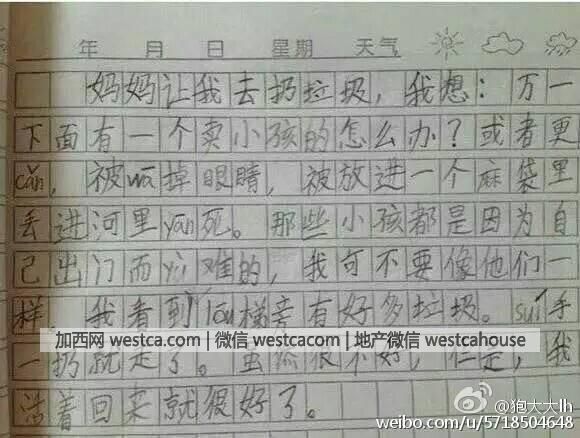 年 月 日 星期 天气
妈妈让我去扔垃圾，我想：万一
下面有一个卖小孩的怎么办？或者更
cǎn，被wā掉眼睛，被放进一个麻袋里
丢进河里yān死。那些小孩都是因为自
己出门而yù难的，我可不要像他们一
样 我看到lóu梯旁有好多垃圾。suí手
加西网 westca.com | 微信 westcacom | 地产微信 westcahouse
一扔就走了。虽然很不好，但是，我
活着回来就很好了。
@狍大大lh
weibo.com/u/5718504648